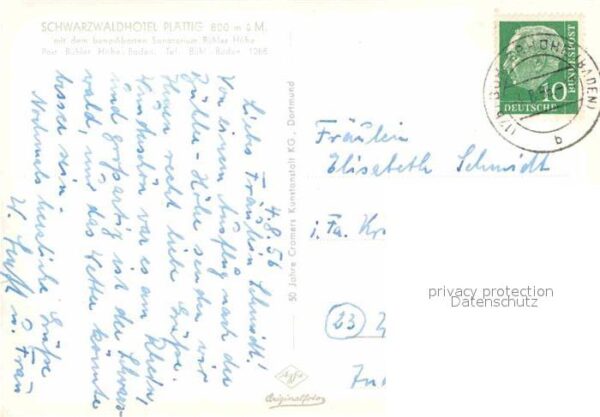 SCHWARZWALDHOTEL PLÄTTIG 800 m ü. M.
mit dem benachbarten Sanatorium Bühler Höhe
Post Bühler Höhe-Baden, Tel. Bühl-Baden 1268
4.8.56
Liebes Fräulein Schmidt!
Von einem Ausflug nach der
Bühler-Höhe senden wir
Ihnen recht liebe Grüße.
Wunderschön war es am Rhein,
und großartig ist der Schwarz-
wald, und das Wetter könnte
besser sein.
Nochmals herzliche Grüße
u. Frau
50 Jahre Cramers Kunstanstalt KG., Dortmund
Agfa
Originalfoto
Fräulein
Elisabeth Schmidt
i. Fa.
(23)
10
DEUTSCHE
BUNDESPOST
(BADEN)
b
privacy protection
Datenschutz